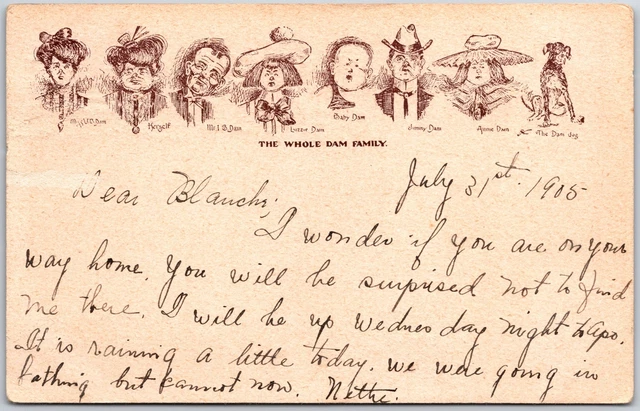 Miss U.B. Dam Herself Mr. I. B. Dam Lizzie Dam Baby Dam Jimmy Dam Annie Dam The Dam dog
THE WHOLE DAM FAMILY.
July 31st. 1905
Dear Blanche;
I wonder if you are on your
way home. You will be surprised not to find
me there. I will be up Wednesday night to
It is raining a little today. We were going in
bathing but cannot now. Nettie.